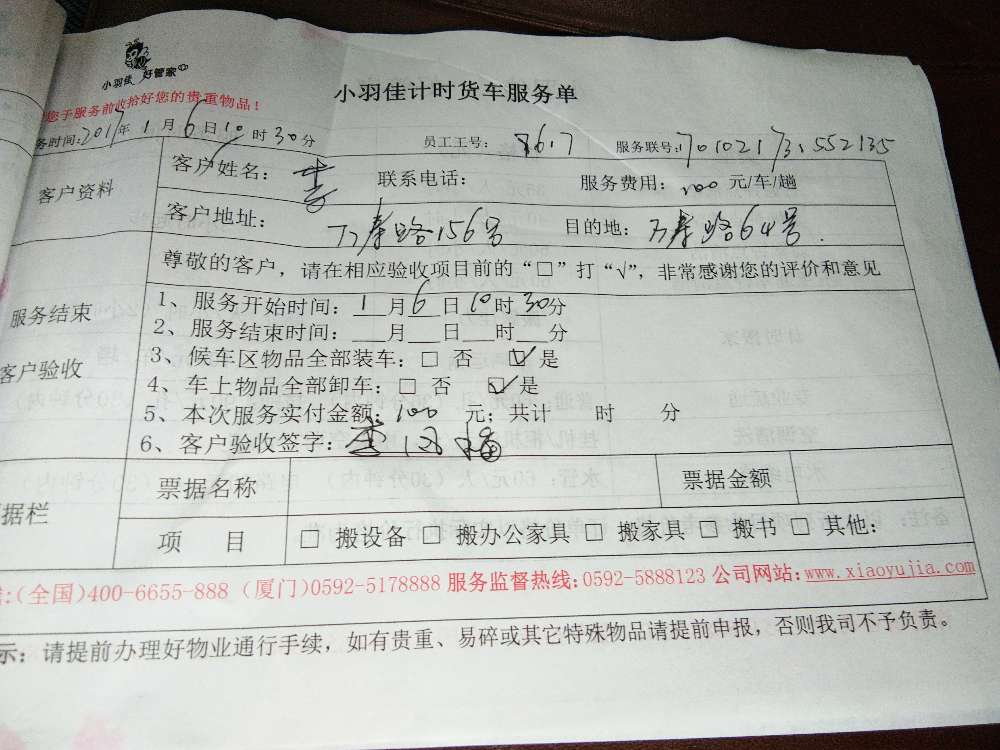 小羽佳 好管家
您于服务前收拾好您的贵重物品！
小羽佳计时货车服务单
务时间:2017年1月6日10时30分 员工工号: 8617 服务联号:1701021731552135
客户资料 客户姓名: 李 联系电话: 服务费用: 100 元/车/趟
客户地址: 万寿路156号 目的地: 万寿路64号.
尊敬的客户，请在相应验收项目前的“□”打“√”，非常感谢您的评价和意见
服务结束
客户验收
1、服务开始时间: 1 月 6 日 10 时 30 分
2、服务结束时间: 月 日 时 分
3、候车区物品全部装车: □ 否 ☑ 是
4、车上物品全部卸车: □ 否 ☑ 是
5、本次服务实付金额: 100 元; 共计 时 分
6、客户验收签字:
据栏 票据名称 票据金额
项 目 □ 搬设备 □ 搬办公家具 □ 搬家具 □ 搬书 □ 其他:
:(全国)400-6655-888 (厦门)0592-5178888 服务监督热线:0592-5888123 公司网站:www.xiaoyujia.com
示: 请提前办理好物业通行手续，如有贵重、易碎或其它特殊物品请提前申报，否则我司不予负责。